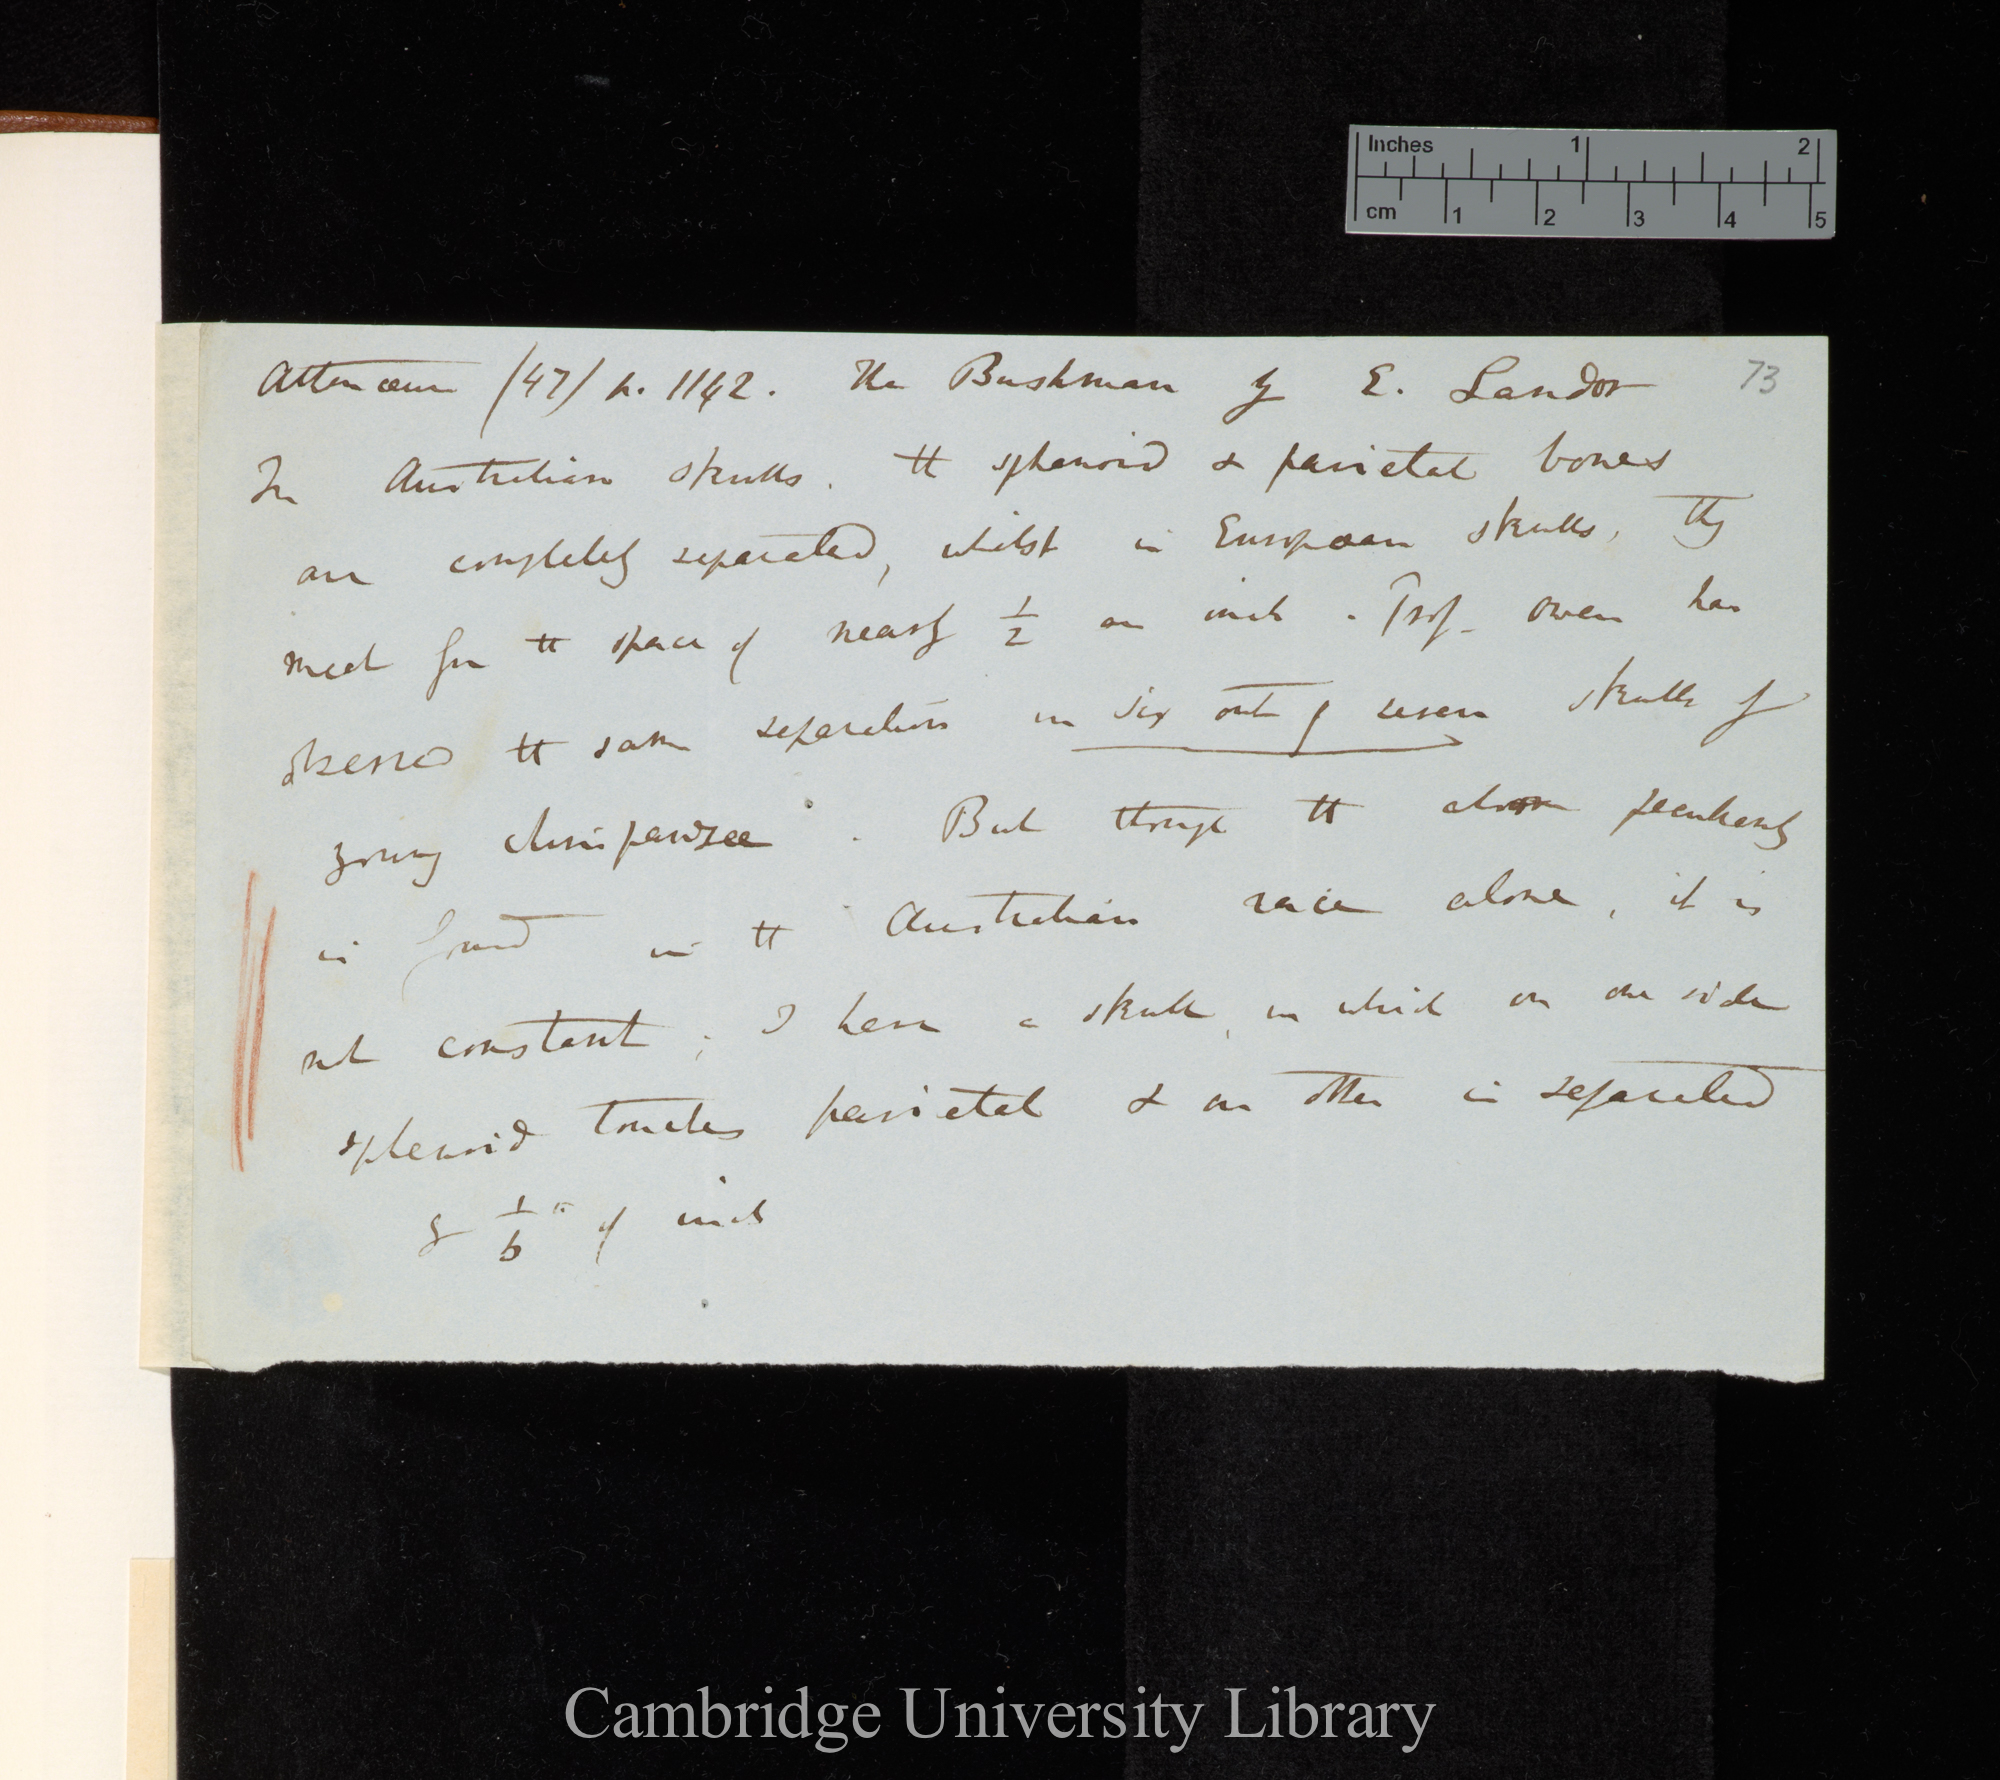 Inches 1 2
cm 1 2 3 4 5
Athenæum /47/ p. 1142. The Bushman by E. Landor 73
In Australian skulls. tt sphenoid & parietal bones
are completely separated, whilst in European skulls, they
meet for tt space of nearly 1/2 an inch. Prof. Owen has
observed tt same separation in six out of seven skulls of
young chimpanzee. But though tt above peculiarity
is found in tt Australian race alone, it is
not constant; I have a skull, in which on one side
sphenoid touches parietal & on other is separated
by 1/6th of inch
Cambridge University Library